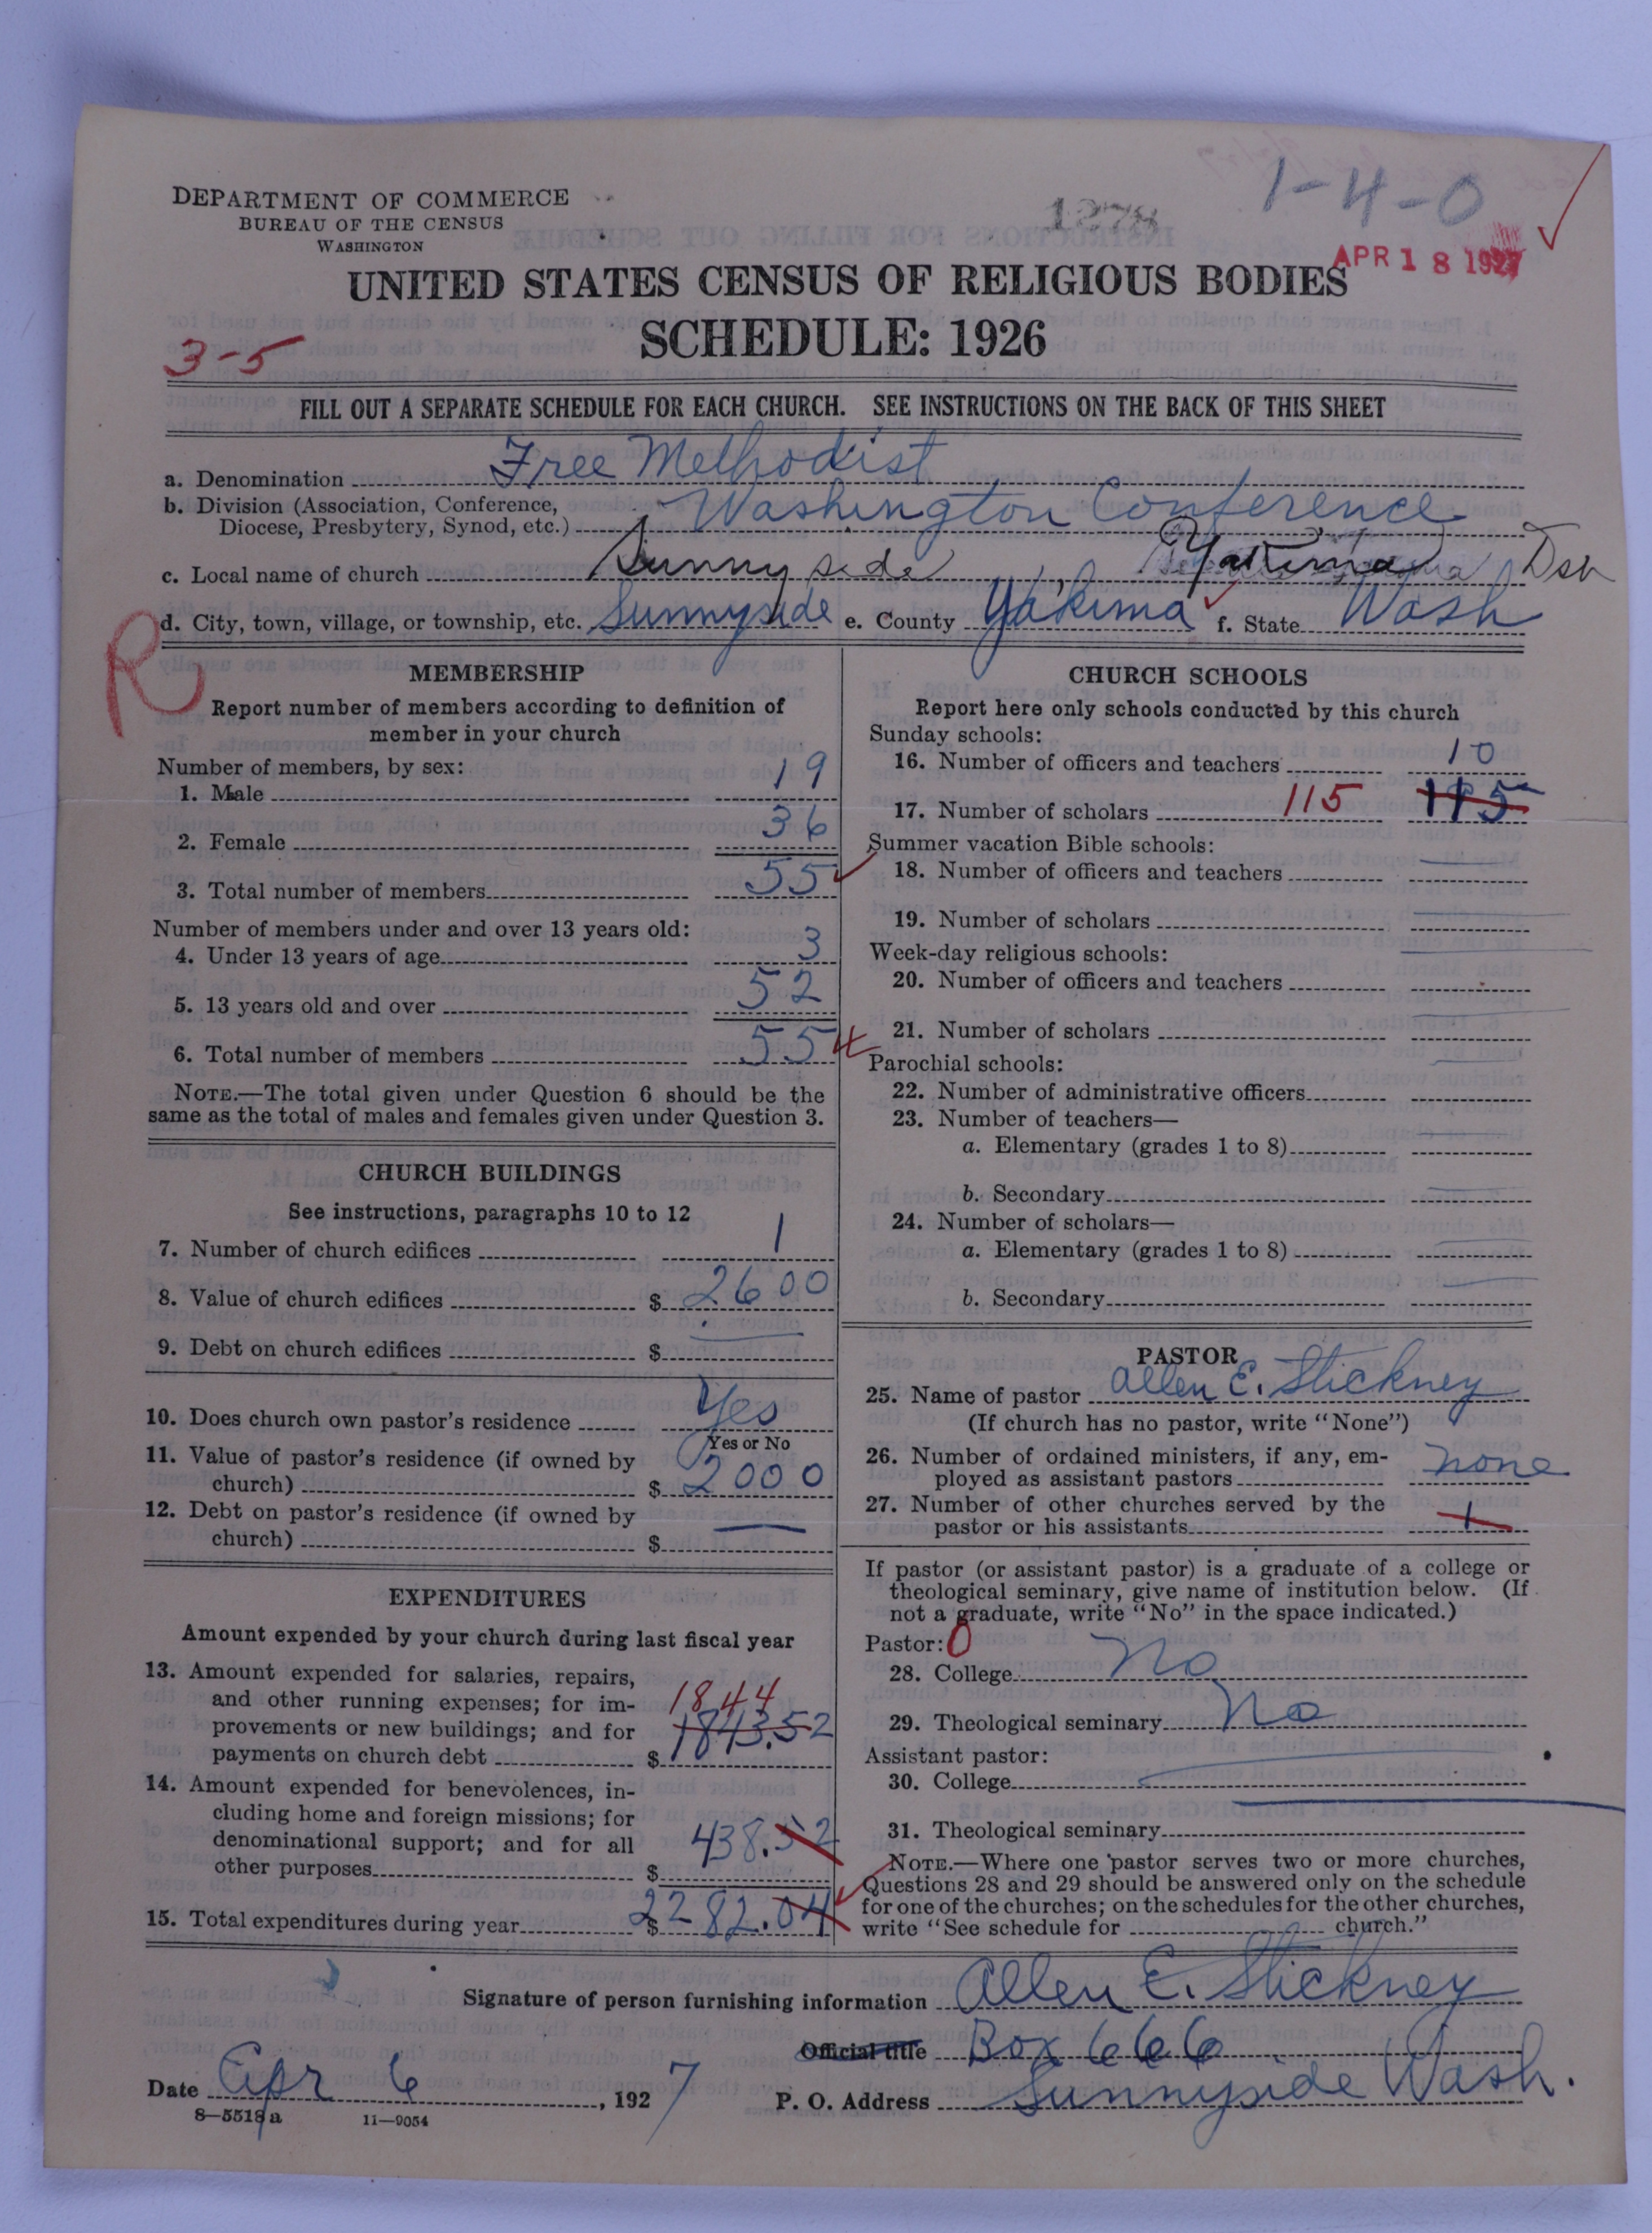 DEPARTMENT OF COMMERCE
BUREAU OF THE CENSUS
WASHINGTON
1278
1-4-0
APR 18 1927
UNITED STATES CENSUS OF RELIGIOUS BODIES
SCHEDULE: 1926
3-5
FILL OUT A SEPARATE SCHEDULE FOR EACH CHURCH. SEE INSTRUCTIONS ON THE BACK OF THIS SHEET
a. Denomination Free Methodist
b. Division (Association, Conference,
Diocese, Presbytery, Synod, etc.) Washington Conference
c. Local name of church Sunnyside, Yakima
d. City, town, village, or township, etc. Sunnyside e. County Yakima f. State Wash
R
MEMBERSHIP
Report number of members according to definition of
member in your church
Number of members, by sex:
1. Male 19
2. Female 36
3. Total number of members 55
Number of members under and over 13 years old:
4. Under 13 years of age 3
5. 13 years old and over 52
6. Total number of members 55
NOTE.—The total given under Question 6 should be the
same as the total of males and females given under Question 3.
CHURCH BUILDINGS
See instructions, paragraphs 10 to 12
7. Number of church edifices 1
8. Value of church edifices $ 2600
9. Debt on church edifices $
10. Does church own pastor's residence Yes
Yes or No
11. Value of pastor's residence (if owned by
church) $ 2000
12. Debt on pastor's residence (if owned by
church) $ —
EXPENDITURES
Amount expended by your church during last fiscal year
13. Amount expended for salaries, repairs,
and other running expenses; for im-
1844
provements or new buildings; and for 1843.52
payments on church debt $
14. Amount expended for benevolences, in-
cluding home and foreign missions; for
denominational support; and for all 438.52
other purposes $
15. Total expenditures during year $ 2282.04
CHURCH SCHOOLS
Report here only schools conducted by this church
Sunday schools:
16. Number of officers and teachers 10
17. Number of scholars 115 115
Summer vacation Bible schools:
18. Number of officers and teachers
19. Number of scholars
Week-day religious schools:
20. Number of officers and teachers
21. Number of scholars
Parochial schools:
22. Number of administrative officers
23. Number of teachers—
a. Elementary (grades 1 to 8)
b. Secondary
24. Number of scholars—
a. Elementary (grades 1 to 8)
b. Secondary
PASTOR
25. Name of pastor Allen E. Stickney
(If church has no pastor, write "None")
26. Number of ordained ministers, if any, em-
ployed as assistant pastors none
27. Number of other churches served by the
pastor or his assistants 1
If pastor (or assistant pastor) is a graduate of a college or
theological seminary, give name of institution below. (If
not a graduate, write "No" in the space indicated.)
Pastor: 0
28. College No
29. Theological seminary No
Assistant pastor:
30. College
31. Theological seminary
NOTE.—Where one pastor serves two or more churches,
Questions 28 and 29 should be answered only on the schedule
for one of the churches; on the schedules for the other churches,
write "See schedule for church."
Signature of person furnishing information Allen E. Stickney
Official title Box 666
Date Apr 6, 1927 P. O. Address Sunnyside Wash.
8—5518a 11—9054